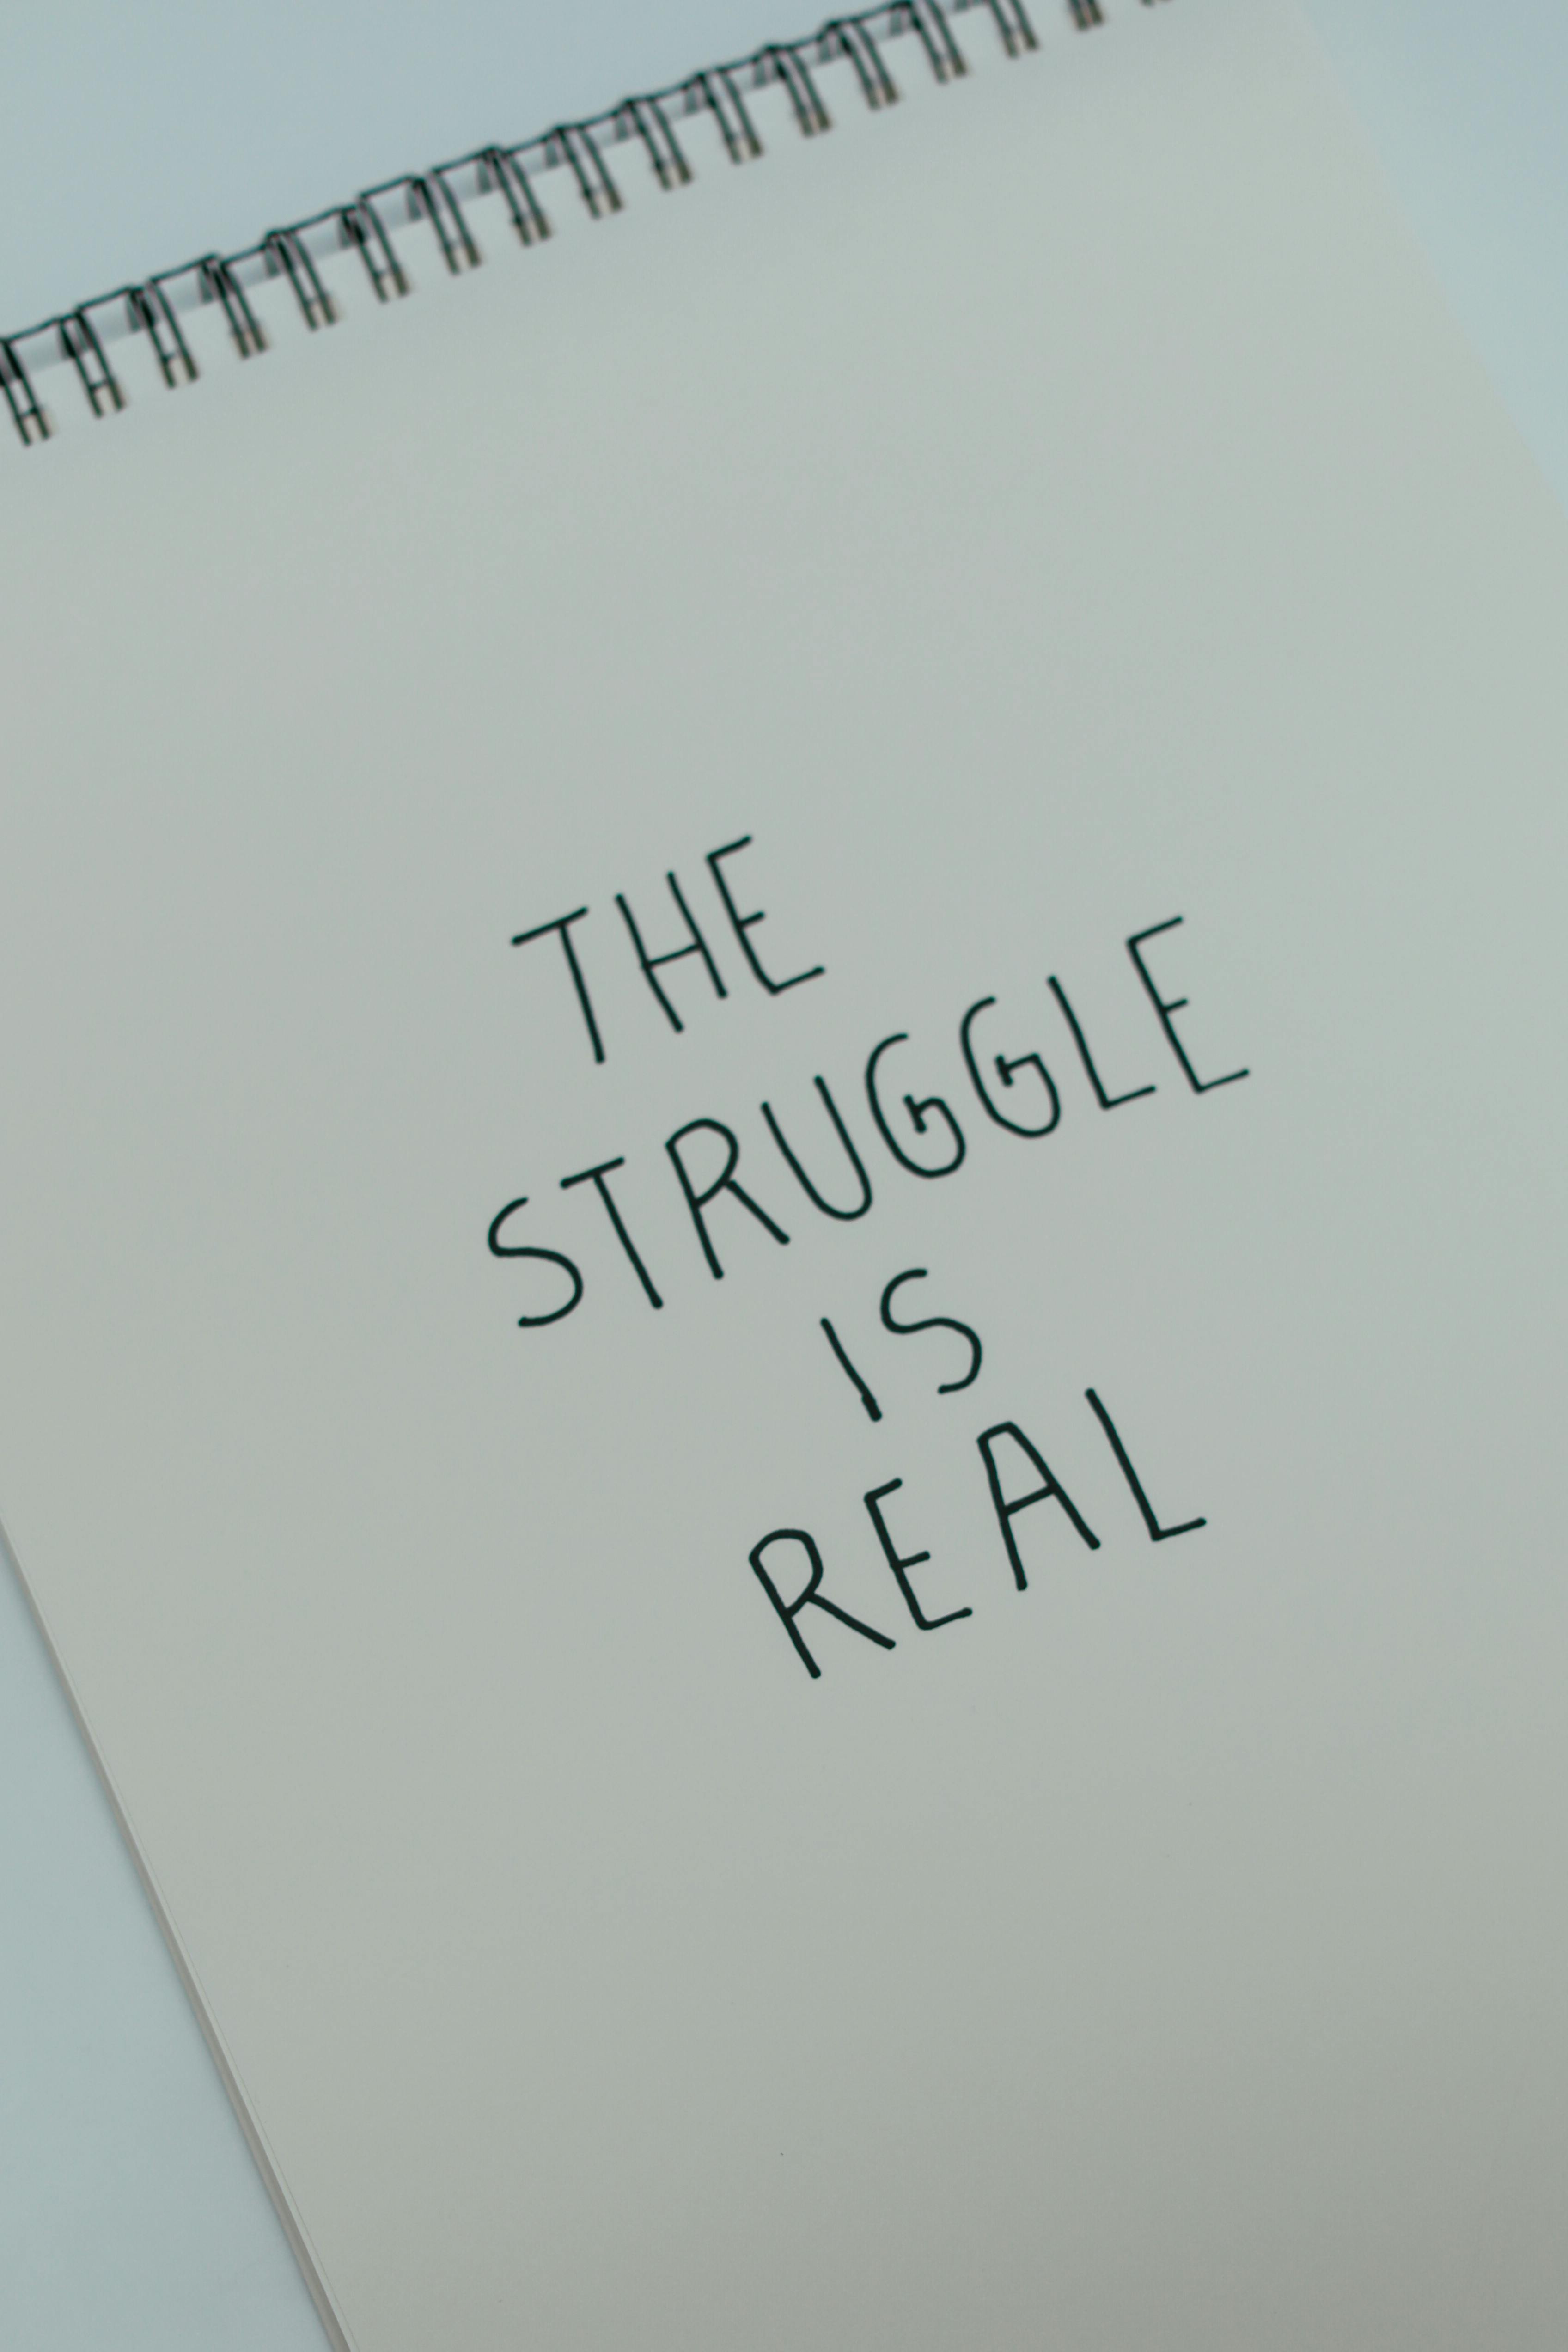 THE
STRUGGLE
IS
REAL